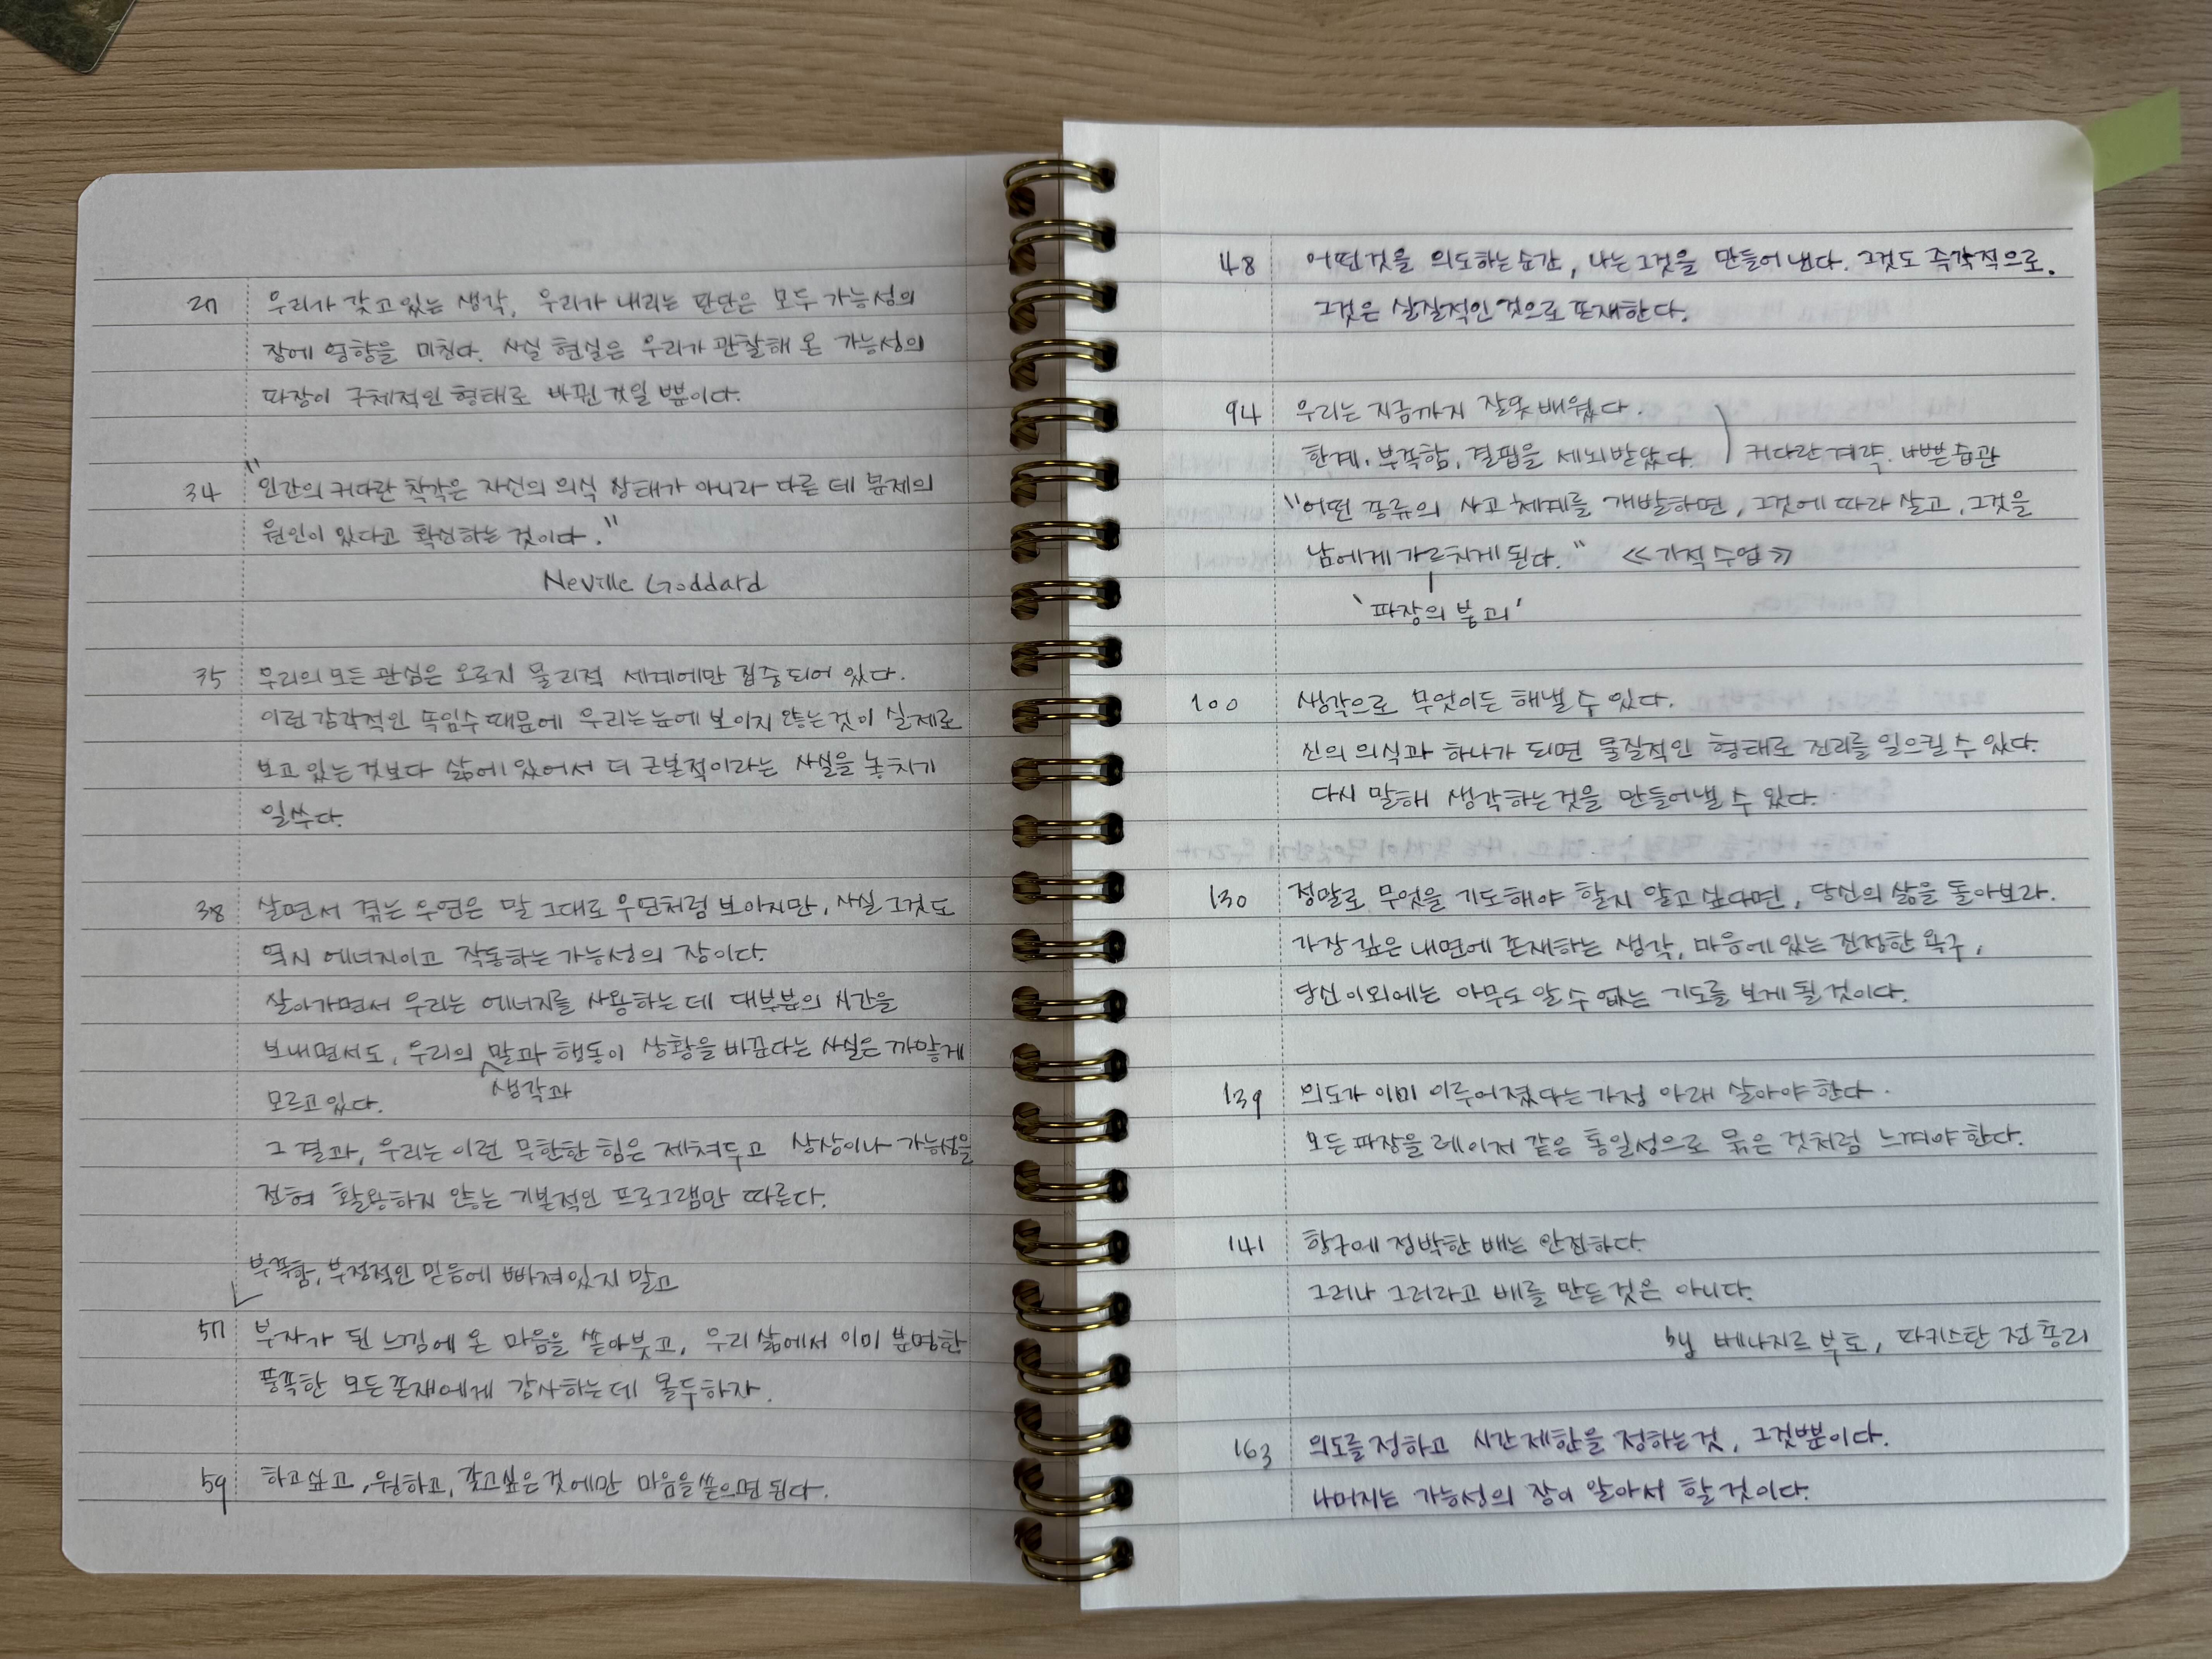 27 우리가 갖고 있는 생각, 우리가 내리는 판단은 모두 가능성의
장에 영향을 미친다. 사실 현실은 우리가 관찰해 온 가능성의
파장이 구체적인 형태로 바뀐 것일 뿐이다.
34 "인간의 커다란 착각은 자신의 의식 상태가 아니라 다른 데 문제의
원인이 있다고 확신하는 것이다."
Neville Goddard
35 우리의 모든 관심은 오로지 물리적 세계에만 집중되어 있다.
이런 감각적인 속임수 때문에 우리는 눈에 보이지 않는 것이 실제로
보고 있는 것보다 삶에 있어서 더 근본적이라는 사실을 놓치기
일쑤다.
38 살면서 겪는 우연은 말 그대로 우연처럼 보이지만, 사실 그것도
역시 에너지이고 작동하는 가능성의 장이다.
살아가면서 우리는 에너지를 사용하는 데 대부분의 시간을
보내면서도, 우리의 말과 행동이 상황을 바꾼다는 사실은 까맣게
생각과
모르고 있다.
그 결과, 우리는 이런 무한한 힘은 제쳐두고 상상이나 가능성을
전혀 활용하지 않는 기본적인 프로그램만 따른다.
부족함, 부정적인 믿음에 빠져있지 말고
57 부자가 된 느낌에 온 마음을 쏟아붓고, 우리 삶에서 이미 분명한
풍족한 모든 존재에게 감사하는 데 몰두하자.
59 하고싶고, 원하고, 갖고싶은 것에만 마음을 쏟으면 된다.
48 어떤 것을 의도하는 순간, 나는 그것을 만들어 낸다. 그것도 즉각적으로.
그것은 실질적인 것으로 존재한다.
94 우리는 지금까지 잘못 배웠다.
한계, 부족함, 결핍을 세뇌받았다. ) 커다란 계략. 나쁜 습관
"어떤 종류의 사고 체계를 개발하면, 그것에 따라 살고, 그것을
남에게 가르치게 된다." 《기적 수업》
'파장의 붕괴'
100 생각으로 무엇이든 해낼 수 있다.
신의 의식과 하나가 되면 물질적인 형태로 진리를 일으킬 수 있다.
다시 말해 생각하는 것을 만들어낼 수 있다.
130 정말로 무엇을 기도해야 할지 알고 싶다면, 당신의 삶을 돌아보라.
가장 깊은 내면에 존재하는 생각, 마음에 있는 진정한 욕구,
당신 이외에는 아무도 알 수 없는 기도를 보게 될 것이다.
139 의도가 이미 이루어졌다는 가정 아래 살아야 한다.
모든 파장을 레이저 같은 통일성으로 묶은 것처럼 느껴야 한다.
141 항구에 정박한 배는 안전하다.
그러나 그러라고 배를 만든 것은 아니다.
by 베나지르 부토, 파키스탄 전 총리
163 의도를 정하고 시간 제한을 정하는 것, 그것뿐이다.
나머지는 가능성의 장이 알아서 할 것이다.